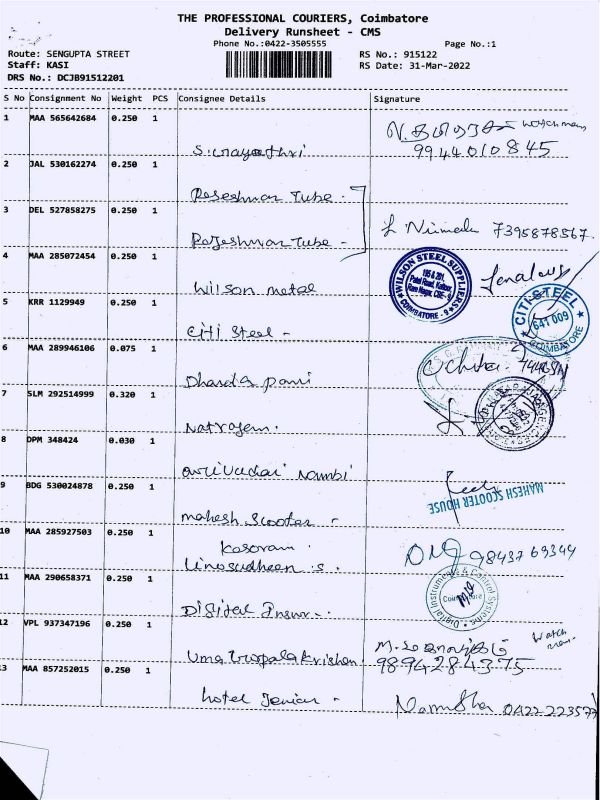 THE PROFESSIONAL COURIERS, Coimbatore
Delivery Runsheet - CMS
Phone No.:0422-3505555 Page No.:1
Route: SENGUPTA STREET RS No.: 915122
Staff: KASI RS Date: 31-Mar-2022
DRS No.: DCJB91512201
S No Consignment No Weight PCS Consignee Details Signature
1 MAA 565642684 0.250 1 watch man
9944010845
2 JAL 530162274 0.250 1
Tube -
3 DEL 527858275 0.250 1 7395878567
Rajeshwar Tube -
4 MAA 285072454 0.250 1
Wilson metal
WILSON STEEL SUPPLIERS
COIMBATORE - 9
5 KRR 1129949 0.250 1
Citi Steel -
CITI STEEL
641 009
COIMBATORE
6 MAA 289946106 0.075 1
Dhanda pani
7 SLM 292514999 0.320 1
8 DPM 348424 0.030 1
Nambi
9 BDG 530024878 0.250 1
MAHESH SCOOTER HOUSE
mahesh Scooter -
10 MAA 285927503 0.250 1 98437 69344
11 MAA 290658371 0.250 1
Digital Instruments & Control Systems
Coimbatore
Digital
12 VPL 937347196 0.250 1 watch man
9894284375
13 MAA 857252015 0.250 1
hotel 0422 223577